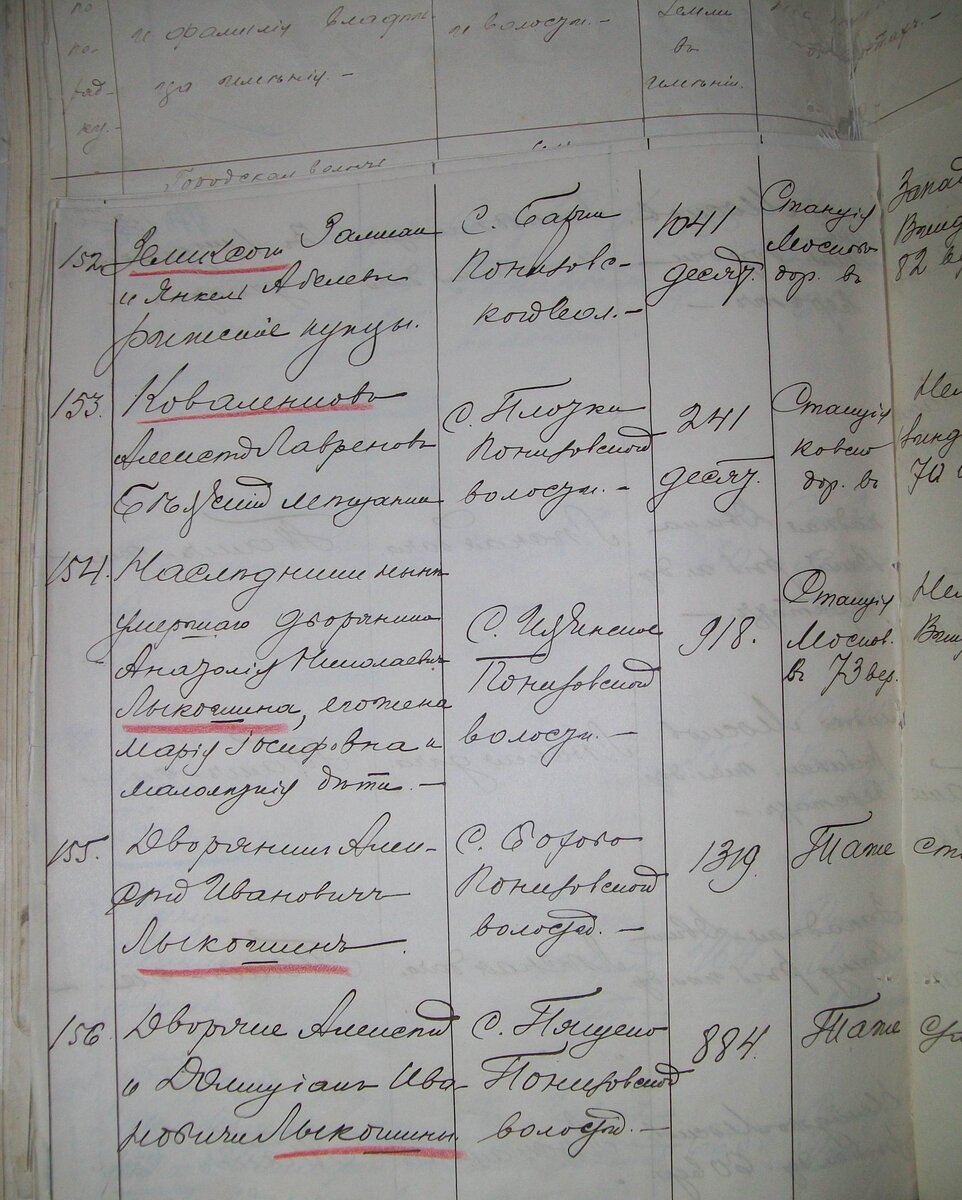 по
по-
ряд-
ку.-
и фамилія владѣль-
ца имѣнія. -
и волости. -
земли
въ
имѣніи.
Городская волость
152.
Земиксонъ Залманъ
и Янкель Абелевы
рижскіе купцы.
С. Бабин
Понизовс-
кой вол. -
1041
десят.
Станція
Москов.
дор. въ
Запад
82 в
153.
Коваленковъ
Александ Лавреновъ
Бѣльскій мѣщанинъ
С. Плоцки
Понизовской
волости. -
241
десят.
Станція
ковско
дор. въ
70
154.
Наслѣдники нынѣ
умершаго дворянина
Анатолія Николаевича
Лыкошина, его жена
Марія Іосифовна и
малолѣтнія дѣти. -
С. Ильинское
Понизовской
волости. -
918.
Станція
Москов.
въ 73 вер.
155.
Дворянинъ Алек-
сандр Ивановичъ
Лыкошинъ.
С. Борово
Понизовской
волости. -
1319.
Таже
156.
Дворяне Александ
и Домиціанъ Ива-
новичи Лыкошины.
С. Пяцено
Понизовской
волости. -
884.
Таже